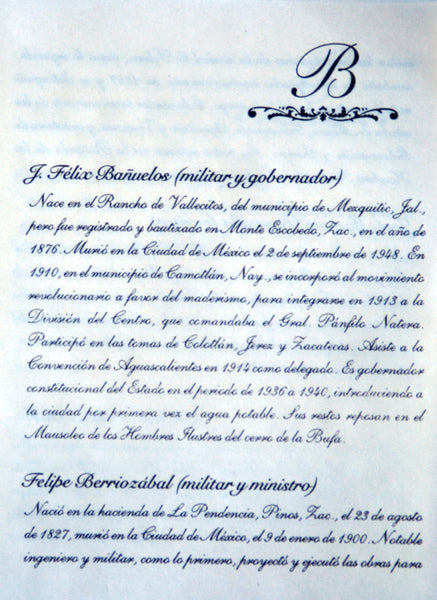 B
J. Félix Bañuelos (militar y gobernador)
Nace en el Rancho de Vallecitos, del municipio de Mezquitic, Jal.,
pero fue registrado y bautizado en Monte Escobedo, Zac., en el año de
1876. Murió en la Ciudad de México el 2 de septiembre de 1948. En
1910, en el municipio de Camotlán, Nay., se incorporó al movimiento
revolucionario a favor del maderismo, para integrarse en 1913 a la
División del Centro, que comandaba el Gral. Pánfilo Natera.
Participó en las tomas de Colotlán, Jerez y Zacatecas. Asiste a la
Convención de Aguascalientes en 1914 como delegado. Es gobernador
constitucional del Estado en el periodo de 1936 a 1940, introduciendo a
la ciudad por primera vez el agua potable. Sus restos reposan en el
Mausoleo de los Hombres Ilustres del cerro de la Bufa.
Felipe Berriozábal (militar y ministro)
Nació en la hacienda de La Pendencia, Pinos, Zac., el 23 de agosto
de 1827, murió en la Ciudad de México, el 9 de enero de 1900. Notable
ingeniero y militar, como lo primero, proyectó y ejecutó las obras para